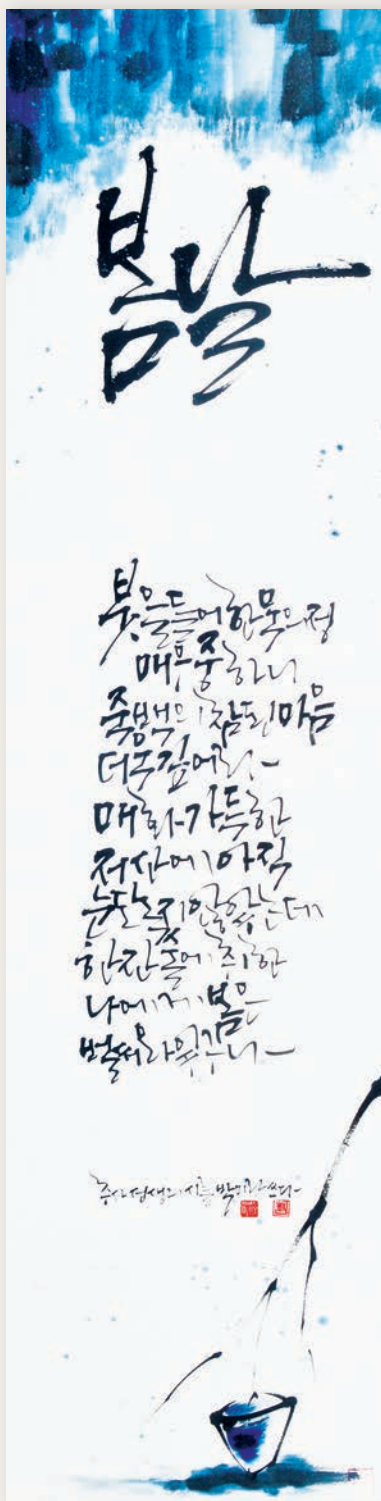 봄날
붓을 들어 한묵의 정
매우 중하니
죽백의 참된 마음
더욱 깊어라
매화 가득한
저 산에 아직
눈발 날리지 않았는데
한 잔 술에 취한
나에게 봄은
벌써 와 있구나
추사 선생의 시를 박미라 쓰다